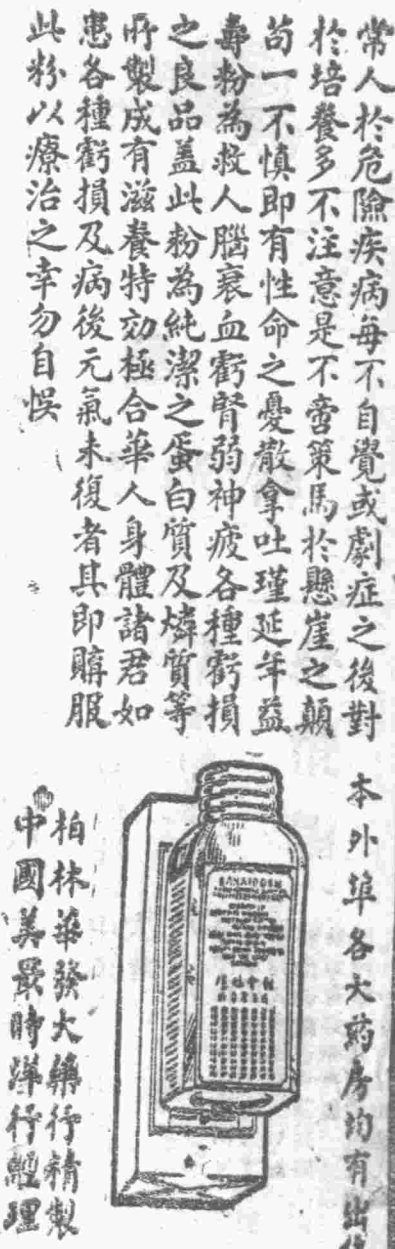 常人於危險疾病每不自覺或劇症之後對
於培養多不注意是不啻策馬於懸崖之顛
苟一不慎即有性命之憂散拿吐瑾延年益
壽粉為救人腦衰血虧腎弱神疲各種虧損
之良品蓋此粉為純潔之蛋白質及燐質等
所製成有滋養特効極合華人身體諸君如
患各種虧損及病後元氣未復者其即購服
此粉以療治之幸勿自悞
本外埠各大葯房均有出
SANATOGEN
柏林華發大藥行精製
中國美最時洋行經理